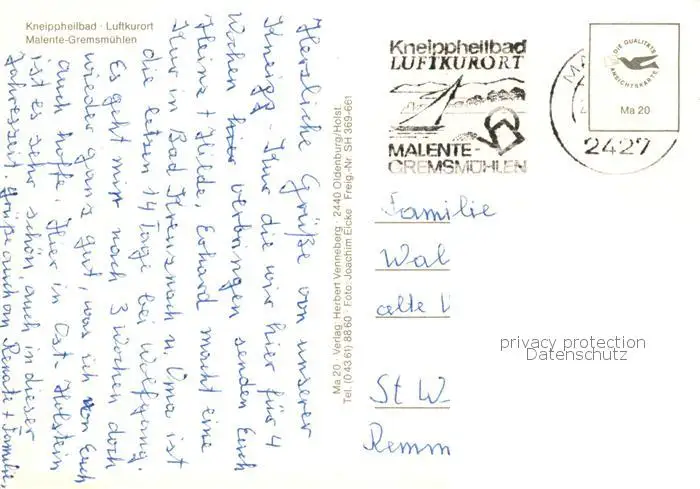 Kneippheilbad · Luftkurort
Malente-Gremsmühlen
Herzliche Grüße von unserer
Kneipp-Kur die wir hier für 4
Wochen hier verbringen senden Euch
Heinz + Hilde, Erhard macht eine
Kur in Bad Kreuznach u. Oma ist
die letzen 14 Tage bei Wolfgang.
Es geht mir nach 3 Wochen doch
wieder ganz gut, was ich von Euch
auch hoffe. Hier in Ost-Holstein
ist es sehr schön, auch in dieser
Jahreszeit. Grüße auch an Renate + Familie,
Ma 20 · Verlag: Herbert Venneberg · 2440 Oldenburg/Holst.
Tel. (0 43 61) 88 60 · Foto: Joachim Eicke · Freig.-Nr. SH 369-661
Kneippheilbad
LUFTKURORT
MALENTE-
GREMSMÜHLEN
MA
2427
DIE QUALITÄTS
ANSICHTSKARTE
Ma 20
Familie
Wal
alte
St W
Remm
privacy protection
Datenschutz